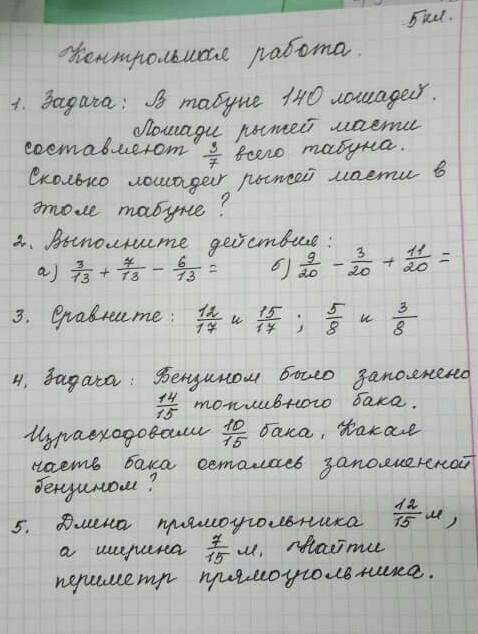 5 кл.
Контрольная работа.
1. Задача: В табуне 140 лошадей.
Лошади рыжей масти
составляют 3/7 всего табуна.
Сколько лошадей рыжей масти в
этом табуне?
2. Выполните действия:
а) 3/13 + 7/13 - 6/13 = б) 9/20 - 3/20 + 11/20 =
3. Сравните: 12/17 и 15/17; 5/8 и 3/8
4. Задача: Бензином было заполнено
14/15 топливного бака.
Израсходовали 10/15 бака. Какая
часть бака осталась заполненной
бензином?
5. Длина прямоугольника 12/15 м,
а ширина 7/15 м. Найти
периметр прямоугольника.